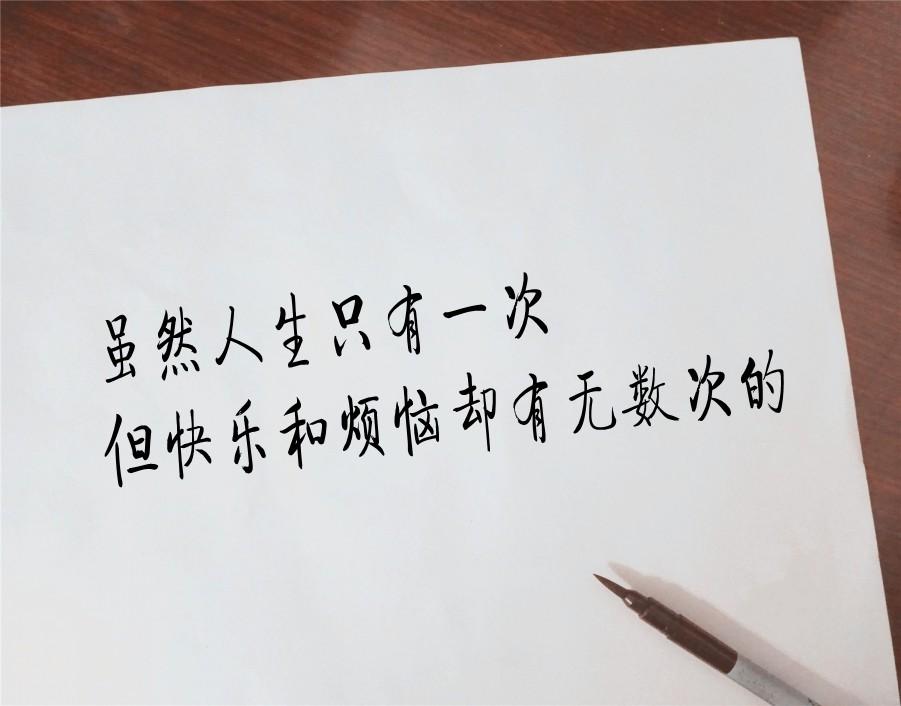 虽然人生只有一次
但快乐和烦恼却有无数次的